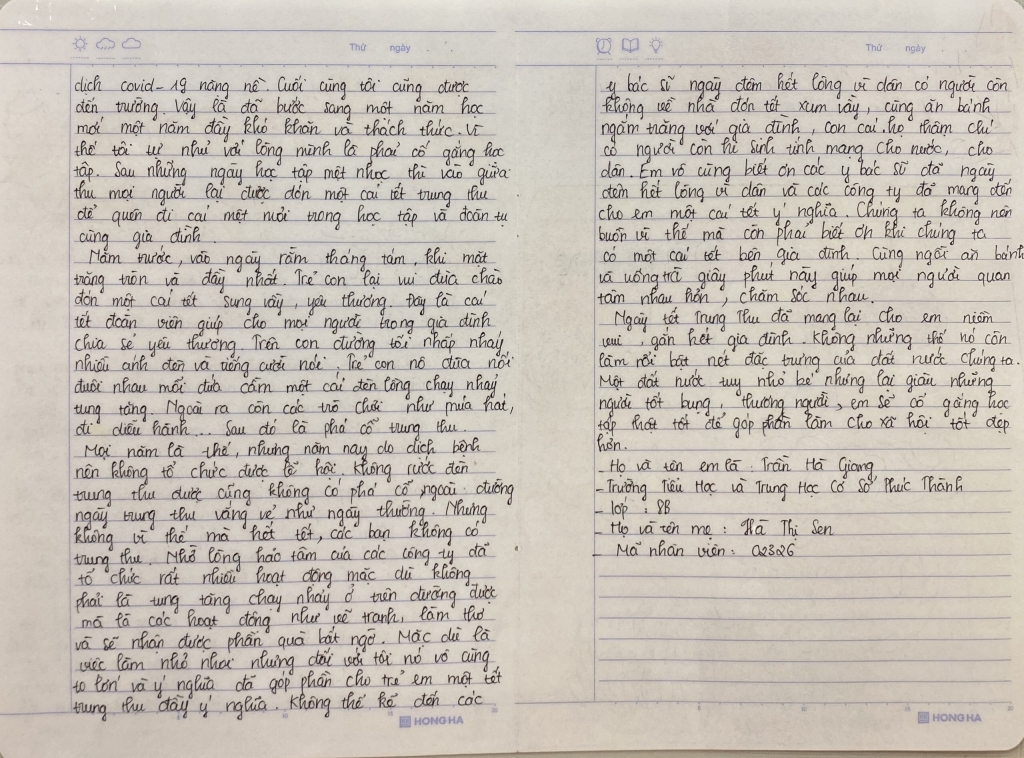 Thứ ngày
dịch covid-19 nặng nề. Cuối cùng tôi cũng được
đến trường. Vậy là đã bước sang một năm học
mới một năm đầy khó khăn và thách thức. Vì
thế tôi tự nhủ với lòng mình là phải cố gắng học
tập. Sau những ngày học tập mệt nhọc thì vào giữa
thu mọi người lại được đón một cái tết trung thu
để quên đi cái mệt mỏi trong học tập và đoàn tụ
cùng gia đình.
Năm trước, vào ngày rằm tháng tám, khi mặt
trăng tròn và đầy nhất. Trẻ con lại vui đùa chào
đón một cái tết sung vầy, yêu thương. Đây là cái
tết đoàn viên giúp cho mọi người trong gia đình
chia sẻ yêu thương. Trên con đường tôi nhấp nháy
nhiều ánh đèn và tiếng cười nói. Trẻ con nô đùa nối
đuôi nhau mỗi đứa cầm một cái đèn lồng chạy nhảy
tung tăng. Ngoài ra còn các trò chơi như múa hát,
đi diễu hành... Sau đó là phá cỗ trung thu.
Mọi năm là thế, nhưng năm nay do dịch bệnh
nên không tổ chức được lễ hội. Không rước đèn
trung thu được cũng không có phá cỗ, ngoài đường
ngày trung thu vắng vẻ như ngày thường. Nhưng
không vì thế mà hết tết, các bạn không có
trung thu. Nhờ lòng hảo tâm của các công ty đã
tổ chức rất nhiều hoạt động mặc dù không
phải là tung tăng chạy nhảy ở trên đường được
mà là các hoạt động như vẽ tranh, làm thơ
và sẽ nhận được phần quà bất ngờ. Mặc dù là
việc làm nhỏ nhoi nhưng đối với tôi nó vô cùng
to lớn và ý nghĩa đã góp phần cho trẻ em một tết
trung thu đầy ý nghĩa. Không thể kể đến các
HONG HA
Thứ ngày
y bác sĩ ngày đêm hết lòng vì dân có người còn
không về nhà đón tết xum vầy, cùng ăn bánh
ngắm trăng với gia đình, con cái họ thậm chí
có người còn hi sinh tính mạng cho nước, cho
dân. Em vô cùng biết ơn các y bác sĩ đã ngày
đêm hết lòng vì dân và các công ty đã mang đến
cho em một cái tết ý nghĩa. Chúng ta không nên
buồn vì thế mà còn phải biết ơn khi chúng ta
có một cái tết bên gia đình. Cùng ngồi ăn bánh
và uống trà giây phút này giúp mọi người quan
tâm nhau hơn, chăm sóc nhau.
Ngày tết Trung Thu đã mang lại cho em niềm
vui, gắn kết gia đình. Không những thế nó còn
làm nổi bật nét đặc trưng của đất nước chúng ta.
Một đất nước tuy nhỏ bé nhưng lại giàu những
người tốt bụng, thương người, em sẽ cố gắng học
tập thật tốt để góp phần làm cho xã hội tốt đẹp
hơn.
- Họ và tên em là : Trần Hà Giang
- Trường Tiểu Học và Trung Học Cơ Sở Phúc Thành
- lớp : 8B
- Họ và tên mẹ : Hà Thị Sen
- Mã nhân viên : 02326
HONG HA